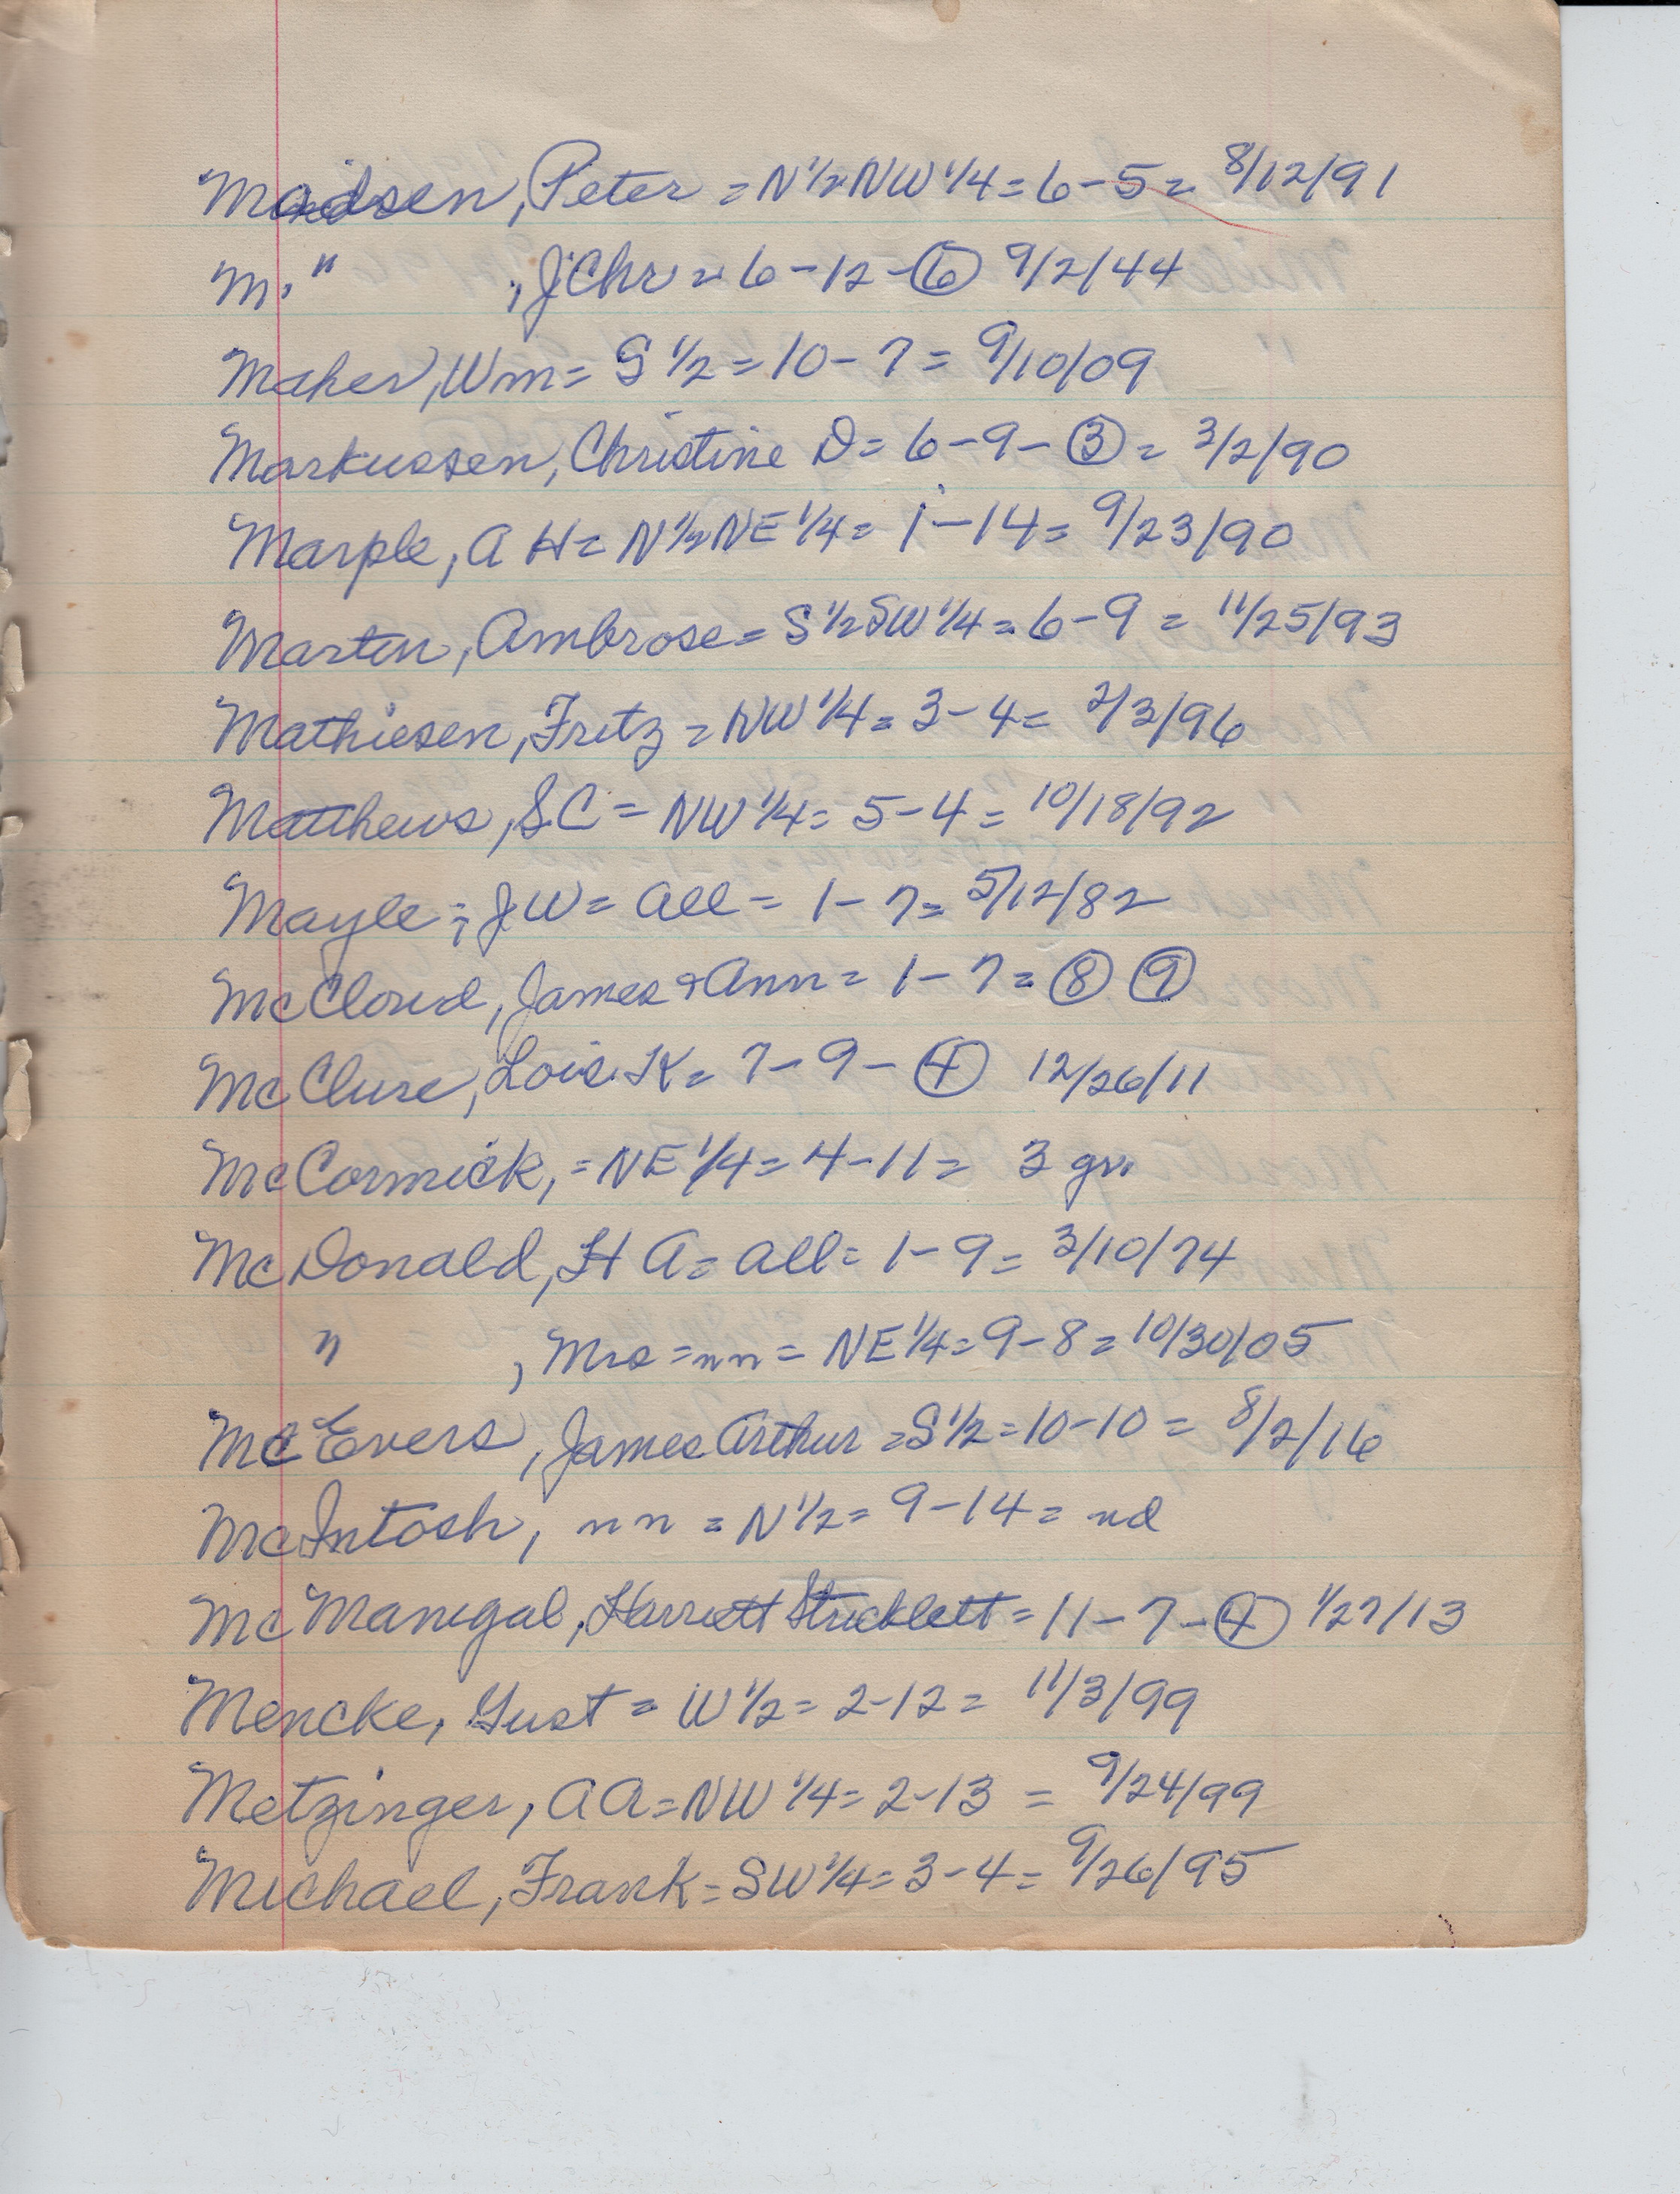 Madsen, Peter = N 1/2 NW 1/4 = 6-5 = 8/12/91
M. " , J Chr = 6-12-⑥ 9/2/44
Maher, Wm = S 1/2 = 10-7 = 9/10/09
Markussen, Christine D = 6-9-③ = 3/2/90
Marple, A H = N 1/2 NE 1/4 = 1-14 = 9/23/90
Martin, Ambrose = S 1/2 SW 1/4 = 6-9 = 11/25/93
Mathiesen, Fritz = NW 1/4 = 3-4 = 2/3/96
Matthews, S C = NW 1/4 = 5-4 = 10/18/92
Mayle, J W = all = 1-7 = 5/12/82
McCloud, James & Ann = 1-7 = ⑧ ⑨
McClure, Lois K = 7-9-④ 12/26/11
McCormick, = NE 1/4 = 4-11 = 3 gr.
McDonald, H A = all = 1-9 = 3/10/74
" , Mrs = nn = NE 1/4 = 9-8 = 10/30/05
McEvers, James Arthur = S 1/2 = 10-10 = 8/2/16
McIntosh, nn = N 1/2 = 9-14 = nd
McManigal, Harriett Stricklett = 11-7-④ 1/27/13
Mencke, Gust = W 1/2 = 2-12 = 11/3/99
Metzinger, A A = NW 1/4 = 2-13 = 9/24/99
Michael, Frank = SW 1/4 = 3-4 = 9/26/95